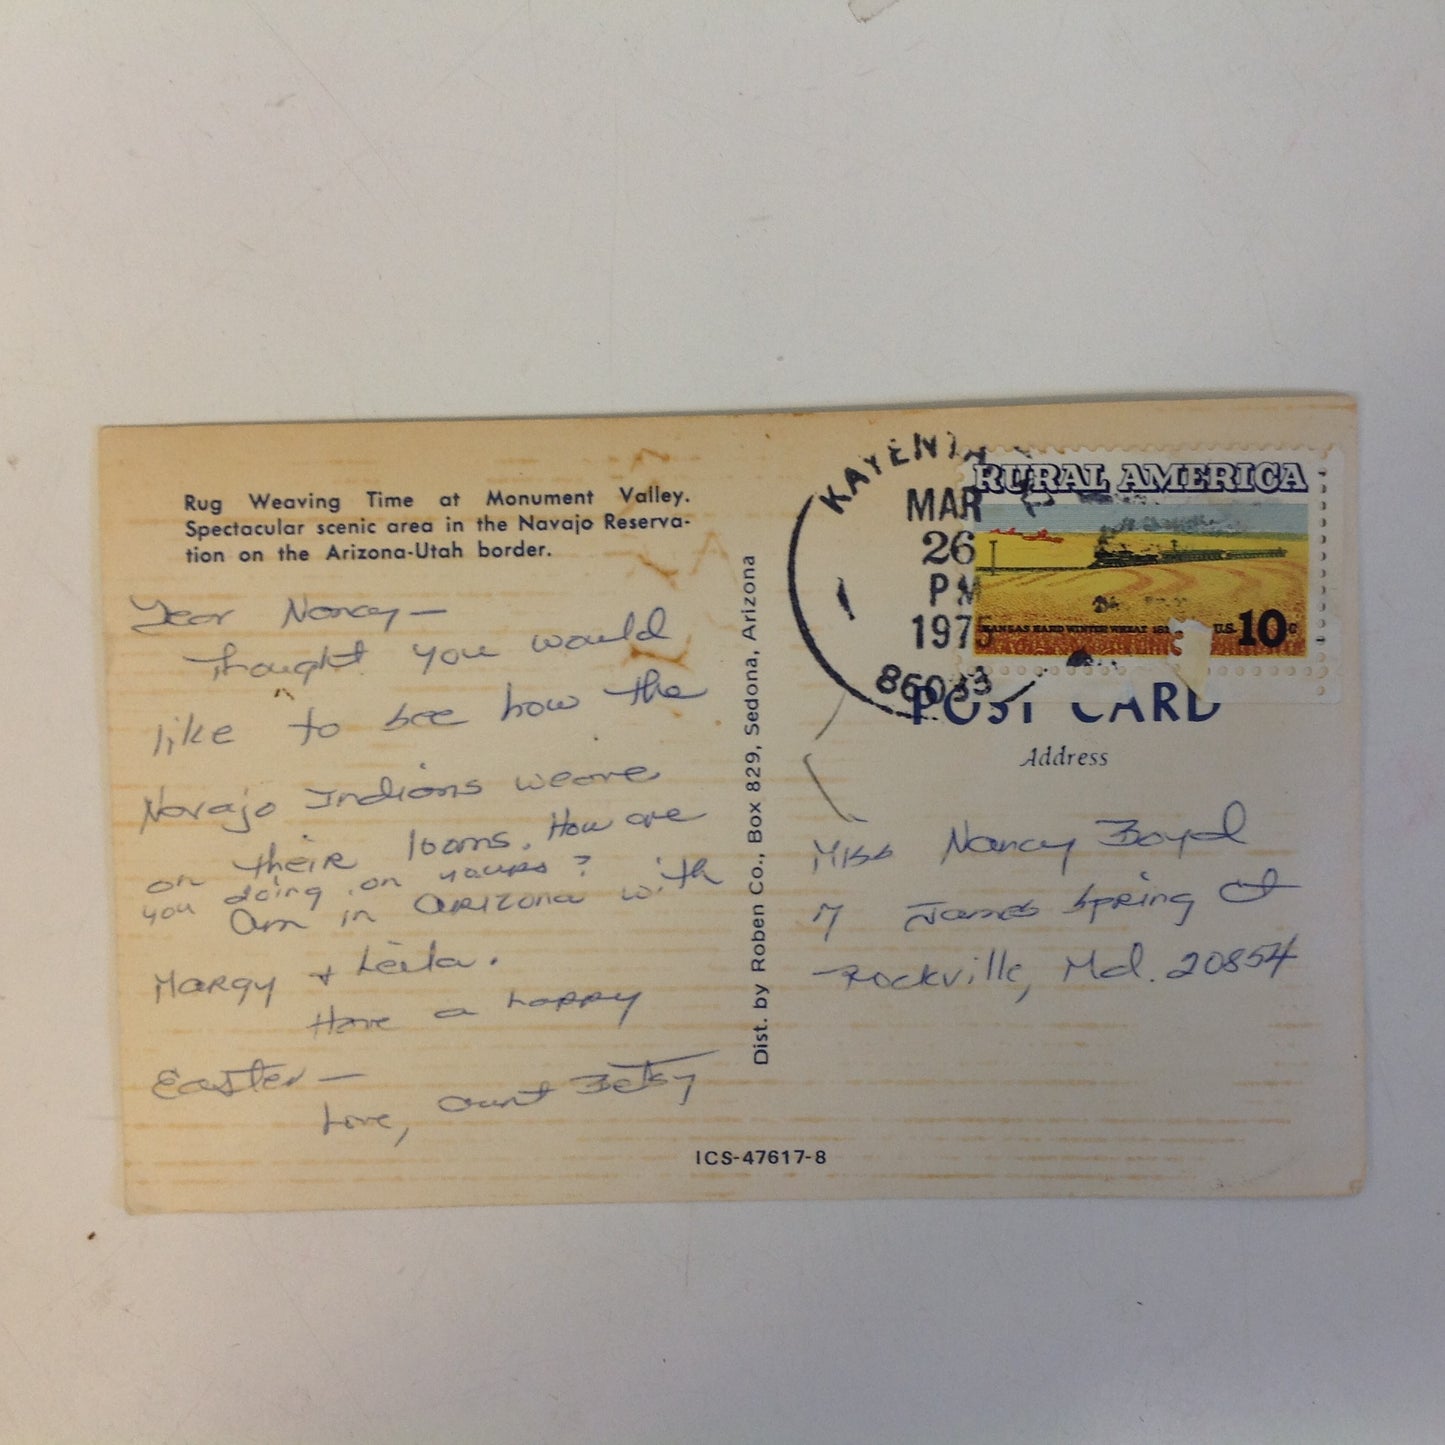 Rug Weaving Time at Monument Valley.
Spectacular scenic area in the Navajo Reserva-
tion on the Arizona-Utah border.
Dear Nancy —
Thought you would
like to see how the
Navajo Indians weave
on their looms. How are
you doing on yours?
Am in Arizona with
Margy + Leila.
Have a happy
Easter —
Love, Aunt Betsy
Dist. by Roben Co., Box 829, Sedona, Arizona
ICS-47617-8
KAYENTA
MAR
26
PM
1975
86033
RURAL AMERICA
KANSAS HARD WINTER WHEAT
U.S. 10c
POST CARD
Address
Miss Nancy Boyd
7 James Spring Ct
Rockville, Md. 20854